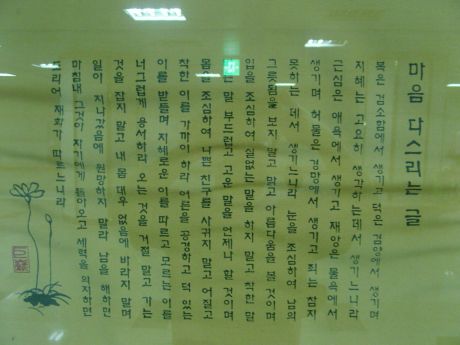 마음 다스리는 글
복은 검소함에서 생기고 덕은 겸양에서 생기며
지혜는 고요히 생각하는데서 생기느니라
근심은 애욕에서 생기고 재앙은 물욕에서
생기며 허물은 경망에서 생기고 죄는 참지
못하는 데서 생기느니라 눈을 조심하여 남의
그릇됨을 보지 말고 맑고 아름다움을 볼 것이며
입을 조심하여 실없는 말을 하지 말고 착한 말
말 부드럽고 고운 말을 언제나 할 것이며
몸을 조심하여 나쁜 친구를 사귀지 말고 어질고
착한 이를 가까이 하라 어른을 공경하고 덕 있는
이를 받들며 지혜로운 이를 따르고 모르는 이를
너그럽게 용서하라 오는 것을 거절 말고 가는
것을 잡지 말고 내 몸 대우 없음에 바라지 말며
일이 지나갔음에 원망하지 말라 남을 해하면
마침내 그것이 자기에게 돌아오고 세력을 의지하면
도리어 재화가 따르느니라